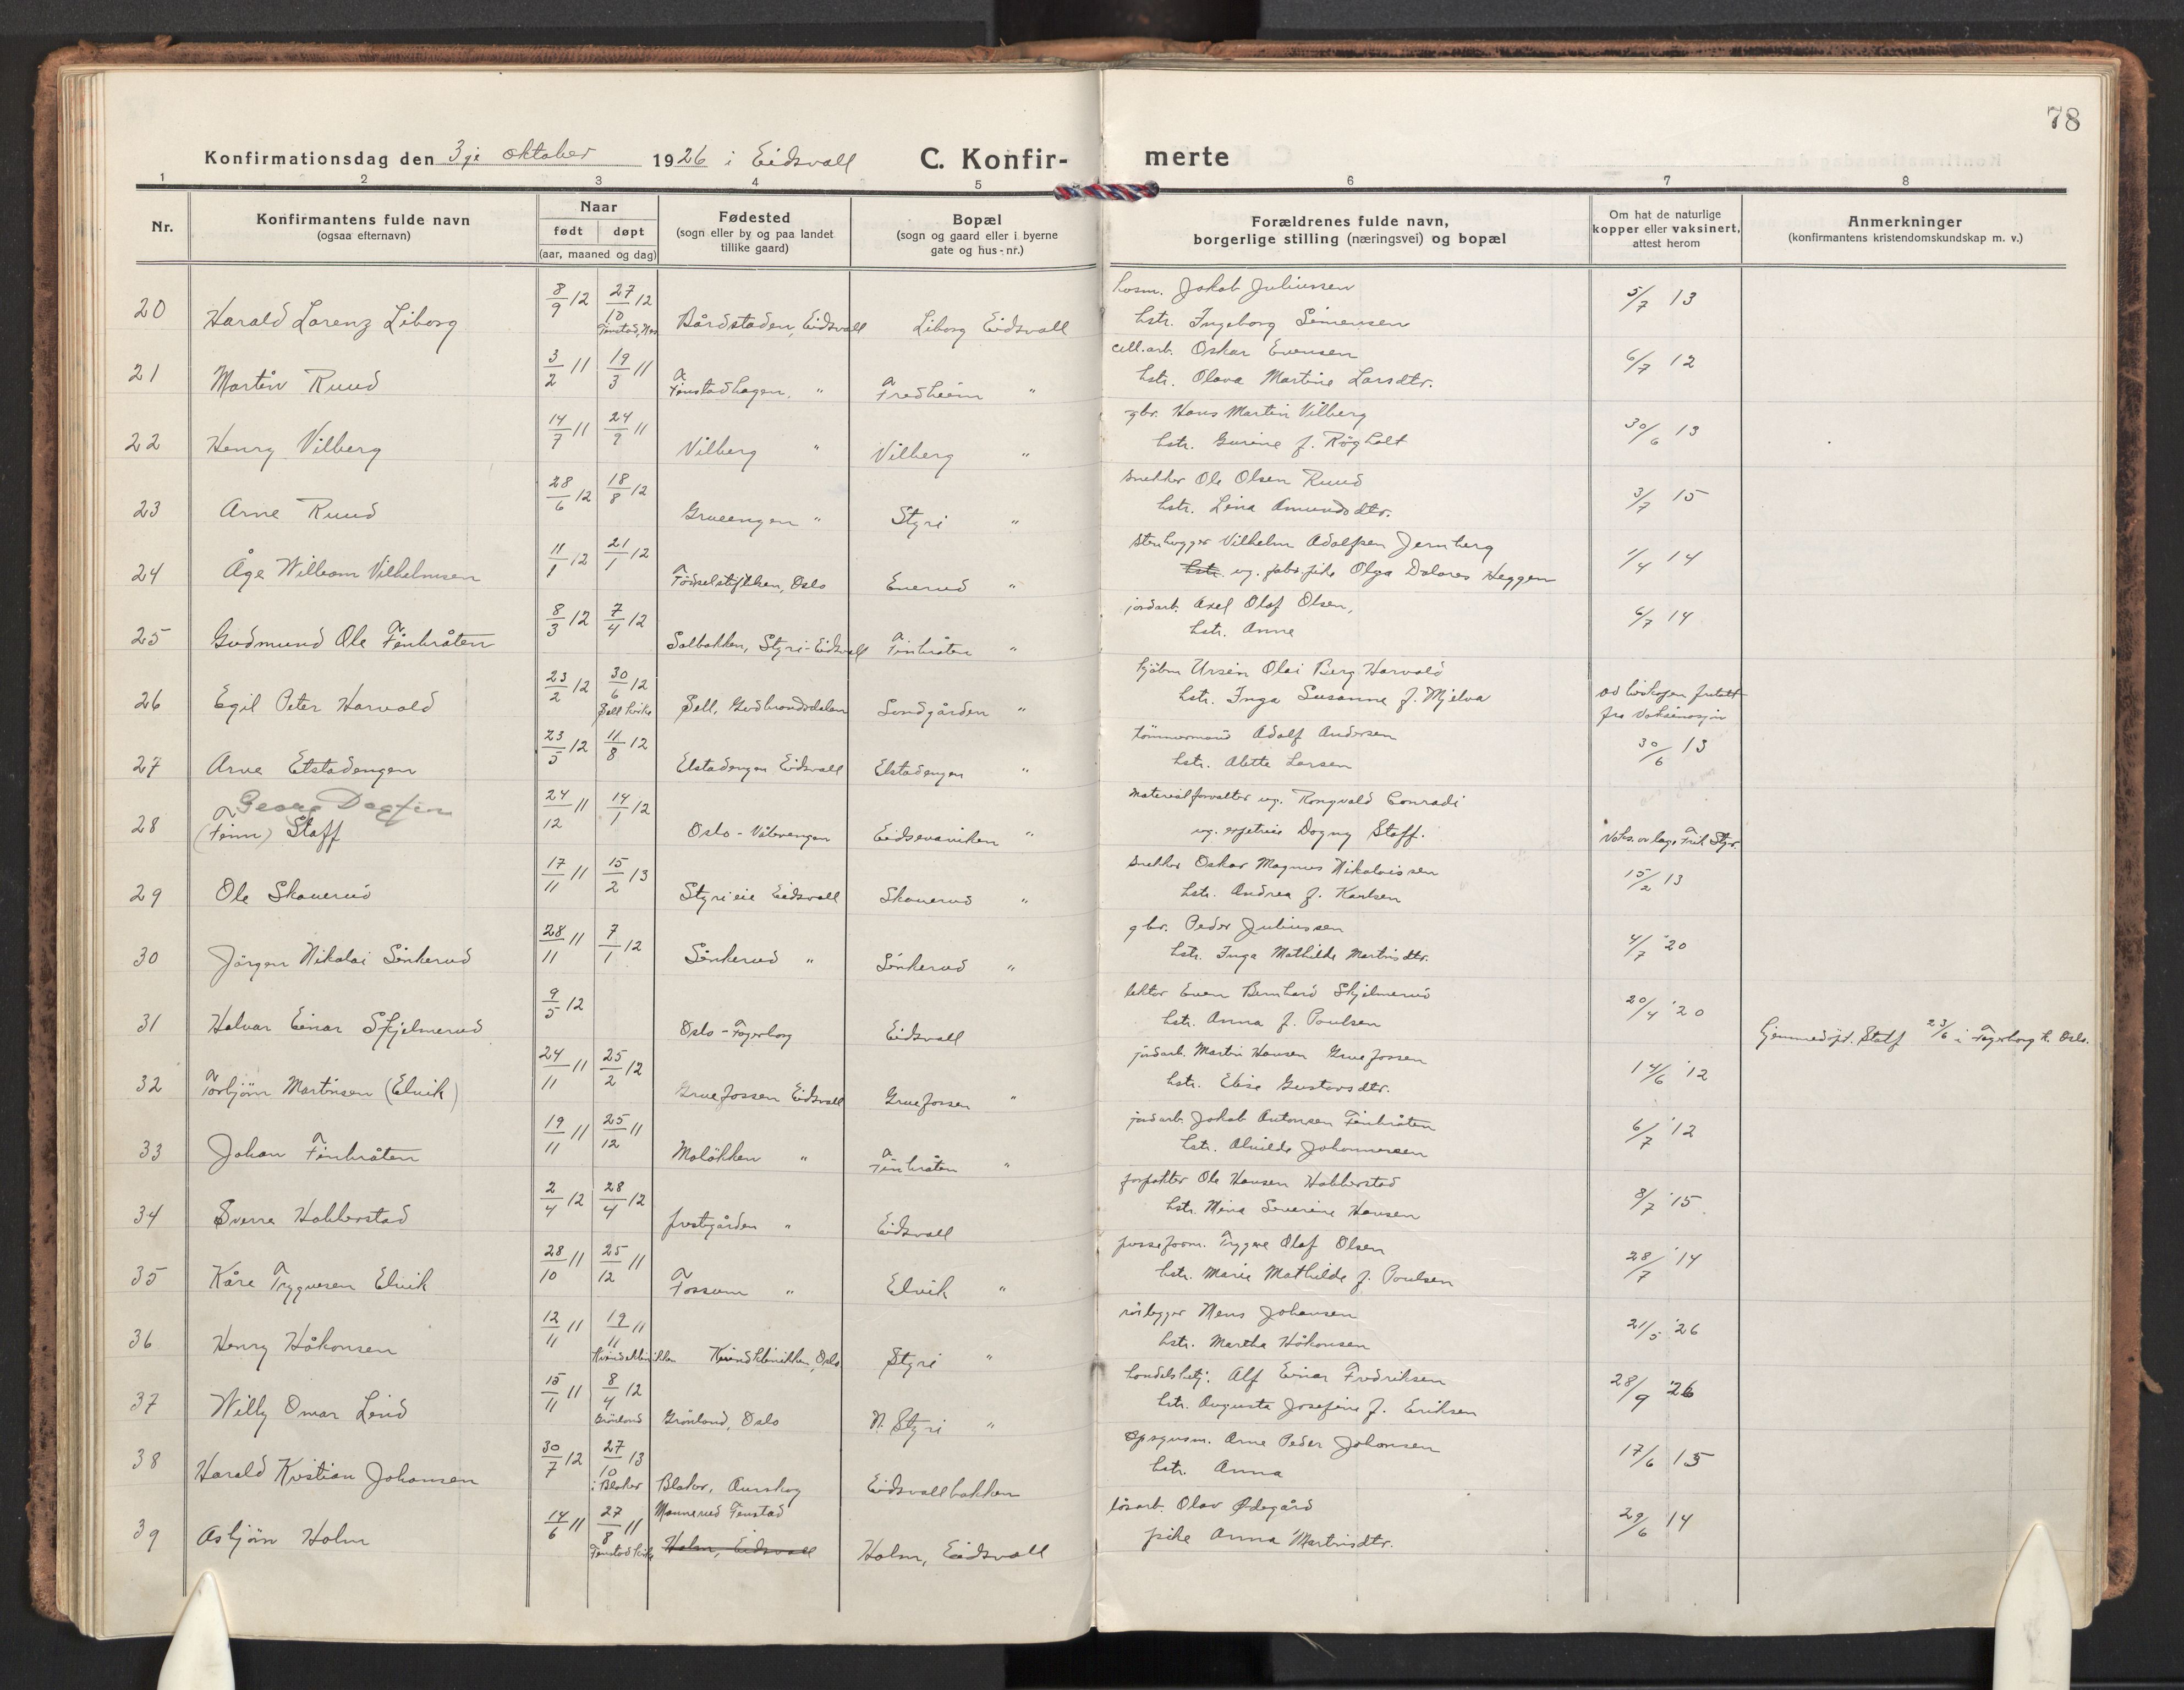 78
Konfirmationsdag den 3je oktober 1926 i Eidsvall C. Konfir- merte
1 2 3 4 5 6 7 8
Nr.
Konfirmantens fulde navn
(ogsaa efternavn)
Naar
født døpt
(aar, maaned og dag)
Fødested
(sogn eller by og paa landet
tillike gaard)
Bopæl
(sogn og gaard eller i byerne
gate og hus-nr.)
Forældrenes fulde navn,
borgerlige stilling (næringsvei) og bopæl
Om hat de naturlige
kopper eller vaksinert,
attest herom
Anmerkninger
(konfirmantens kristendomskundskap m. v.)
20 Harald Lorenz Liborg 8/9 12 27/10 12 Bårdstaden, Eidsvall Liborg Eidsvall husm. Jakob Juliussen 5/7 13
hstr. Ingeborg Simensen
21 Martin Ruud 3/2 11 19/3 11 Finstadhagen, " Fredheim " cell.arb. Oskar Evensen 6/7 12
hstr. Olava Martine Larsdtr.
22 Henry Vilberg 14/7 11 24/9 11 Vilberg " Vilberg " gbr. Hans Martin Vilberg 30/6 13
hstr. Gurine f. Røgholt
23 Arne Ruud 28/6 12 18/8 12 Grueengen " Styri " snekker Ole Olsen Ruud 3/7 15
hstr. Lina Amundsdtr.
24 Åge William Vilhelmsen 11/1 12 21/1 12 Fødselstiftelsen, Oslo Enerud " stenhugger Vilhelm Adolfsen Jernberg 1/4 14
hstr. ug. fabr.pike Olga Dolores Heggen
25 Gudmund Ole Finbråten 8/3 12 7/4 12 Solbakken, Styri-Eidsvall Finbråten " jordarb. Axel Olaf Olsen, 6/7 14
hstr. Anne
26 Egil Peter Harvold 23/2 12 30/6 12 Sell kirke Sell, Gudbrandsdalen Sundgården " kjøbm. Ursin Olai Berg Harvold
hstr. Inga Susanne f. Mjelva
fra vaksinasjon
27 Arve Elstadengen 23/5 12 11/8 12 Elstadengen Eidsvall Elstadengen " tømmermand Adolf Andersen 30/6 13
hstr. Alette Larsen
Georg Dagfin
28 (Finn) Staff 24/12 11 14/1 12 Oslo - Vålerengen Eidsvaviken " materialforvalter ug. Rongvald Conradi
ug. Dagny Staff.
29 Ole Skauerud 17/11 11 15/2 13 Styri eie Eidsvall Skauerud " snekker Oskar Magnus Nikolaissen 15/2 13
hstr. Andrea f. Karlsen
30 Jörgen Nikolai Sönkerud 28/11 11 7/1 12 Sönkerud " Sönkerud " gbr. Peder Juliussen 4/7 '20
hstr. Inga Mathilde Martinsdtr.
31 Halvar Einar Skjelmerud 9/5 12 Oslo - Fagerborg Eidsvall lektor Even Bernhard Skjelmerud 20/4 '20
hstr. Anna f. Poulsen hjemmedøpt. Stadf 23/6 i Fagerborg k. Oslo.
32 Torbjörn Martinsen (Elvik) 24/11 11 25/2 12 Gruefossen Eidsvall Gruefossen " jordarb. Martin Hansen Gruefossen 14/6 '12
hstr. Elise Gustavsdtr.
33 Johan Finbråten 19/11 11 25/12 11 Moløkken " Finbråten " jordarb. Jakob Antonsen Finbråten 6/7 '12
hstr. Alvilde Johannessen
34 Sverre Habberstad 2/4 12 28/4 12 prestegården " Eidsvall forpakter Ole Hansen Habberstad 8/7 '15
hstr. Mina Severine Hansen
35 Kåre Trygvesen Elvik 28/10 11 25/12 11 Fossum " Elvik " Tryggve Olaf Olsen 28/7 '14
hstr. Marie Mathilde f. Poulsen
36 Henry Håkonsen 12/11 11 19/11 11 Kvindeklinikken Kvindeklinikken, Oslo Styri " rørlegger Mons Johansen 21/5 '26
hstr. Martha Håkonsen
37 Willy Omar Lind 15/11 11 8/4 12 Grönland Grönland, Oslo N. Styri " handelsbetj. Alf Einar Fredriksen 28/9 '26
hstr. Augusta Josefine f. Eriksen
38 Harald Kristian Johansen 30/7 12 27/10 13 i Blaker Blaker, Aurskog Eidsvallbakken opsynsm. Arne Peder Johansen 17/6 15
hstr. Anna
39 Asbjörn Holm 14/6 11 27/8 11 Finstad kirke Mannerud Finstad Holm, Eidsvall Holm, Eidsvall løsarb. Olav Ødegård 29/6 14
pike Anna Martinsdtr.